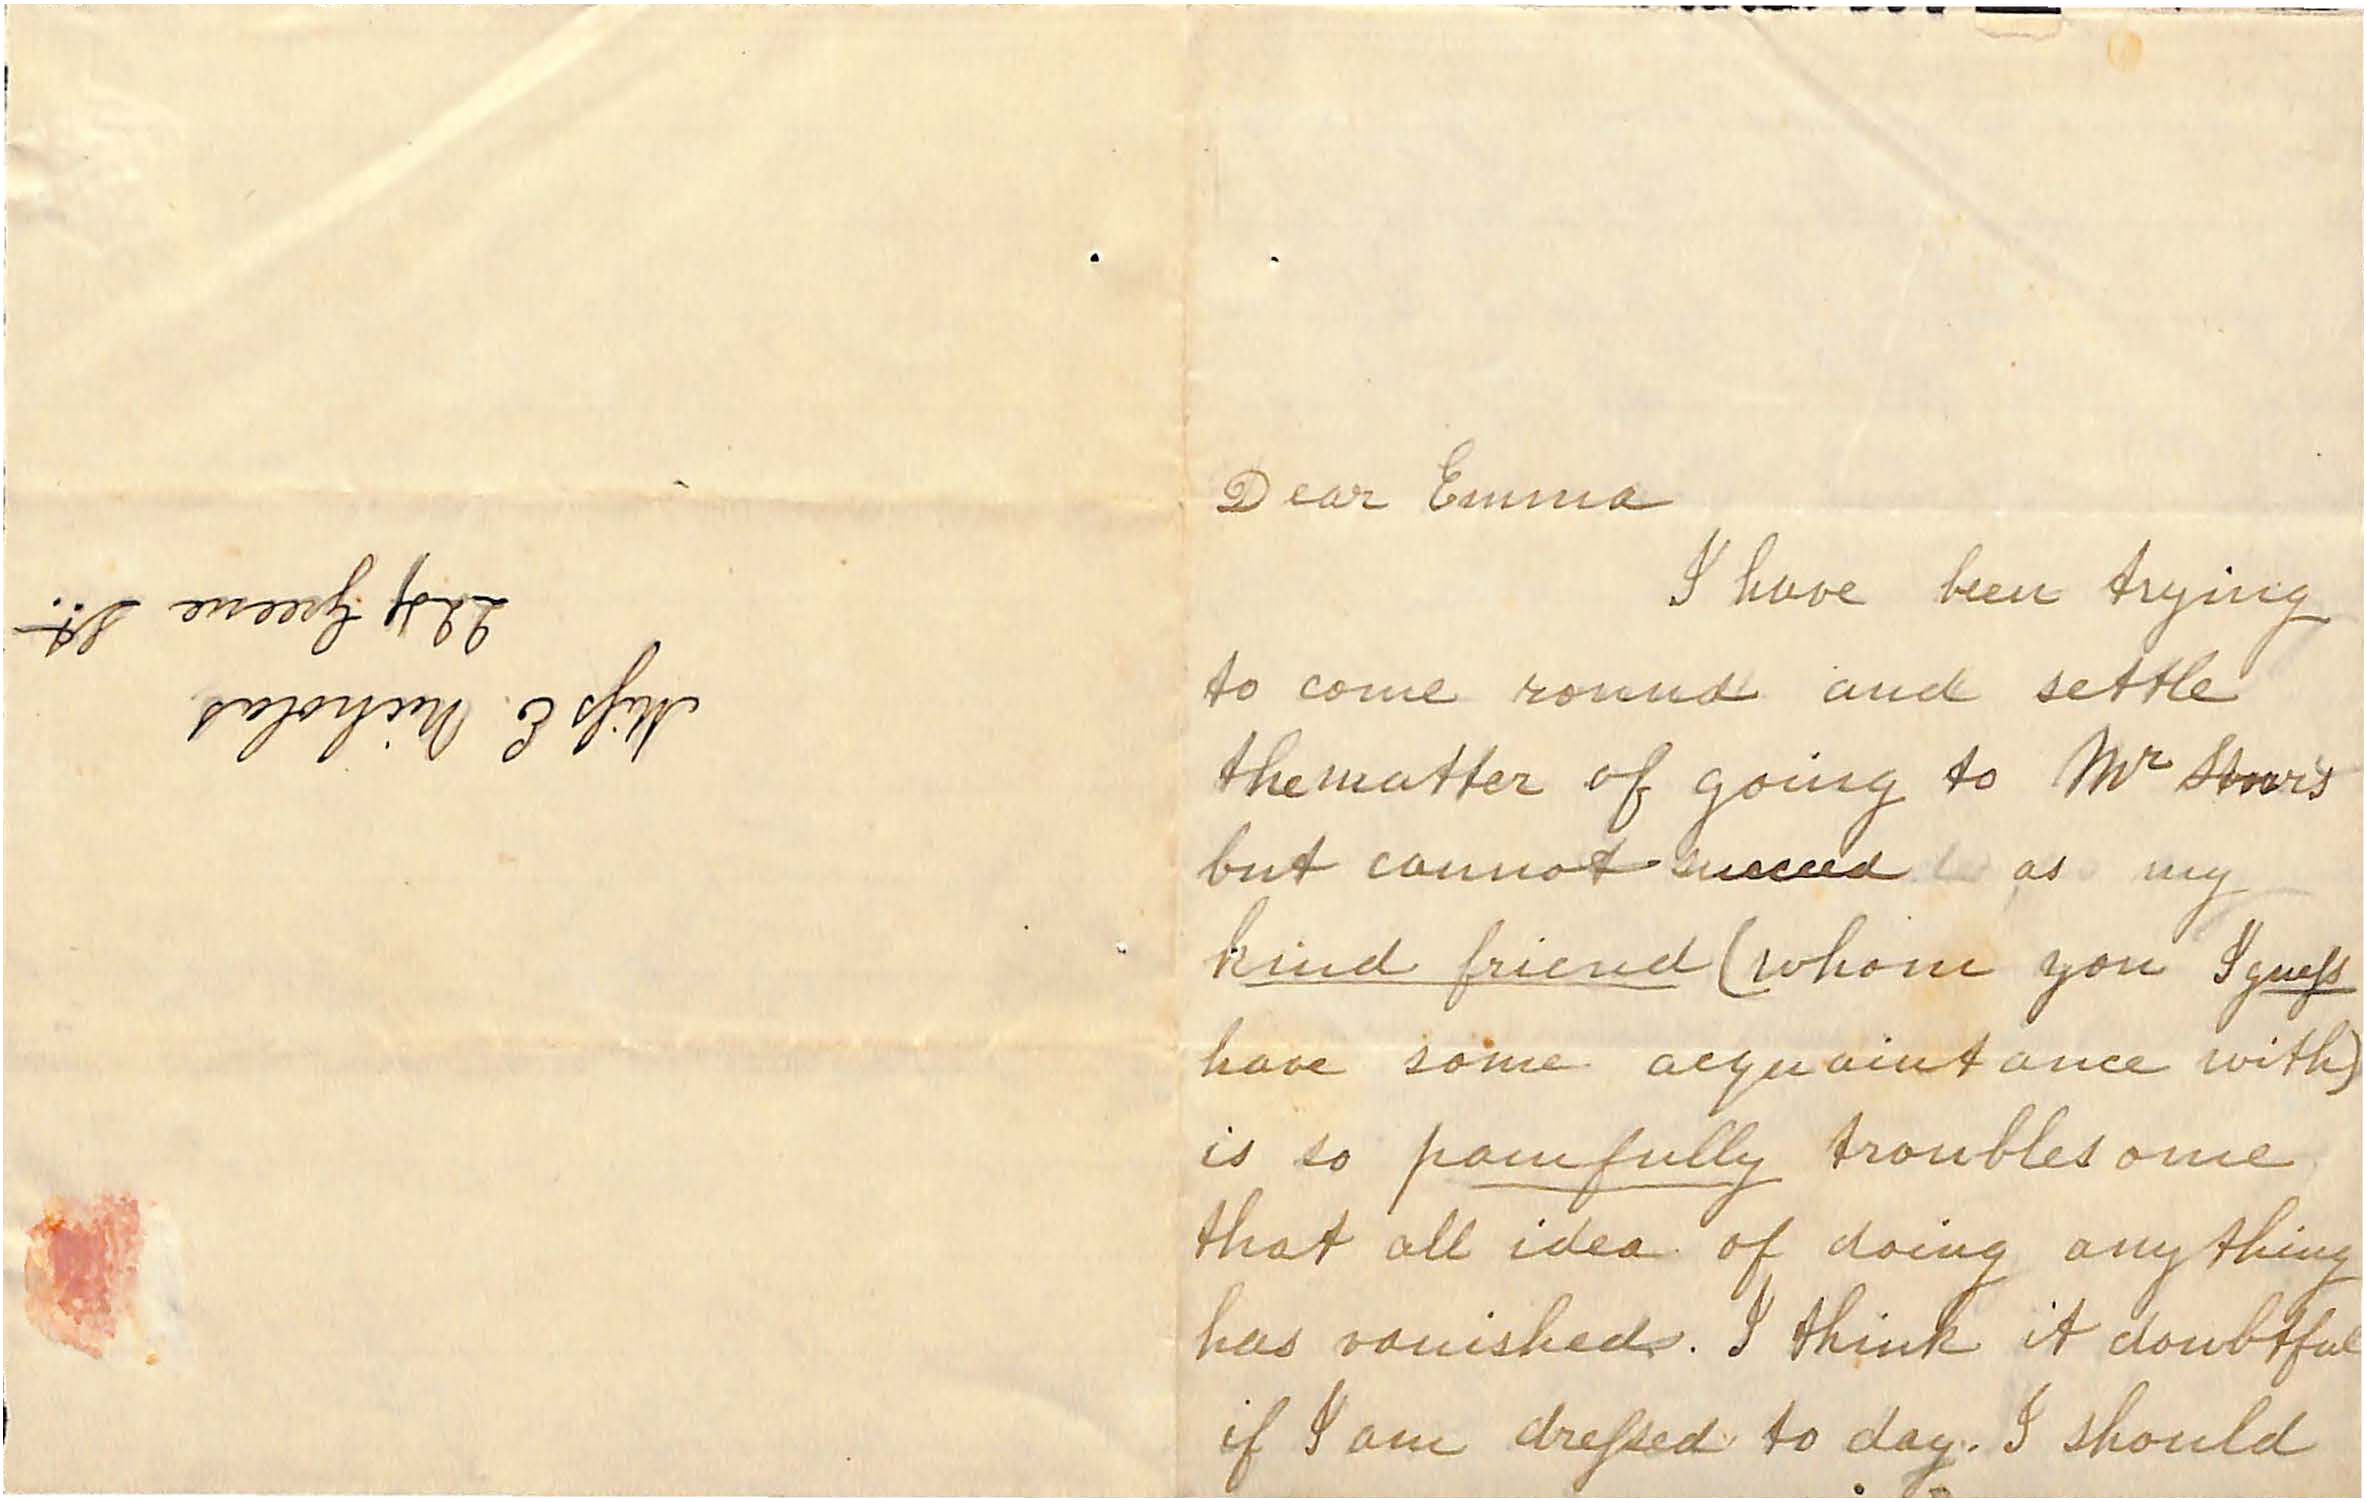 Miss E. Nicholas
Greene St.
Dear Emma
I have been trying
to come round and settle
the matter of going to Mr
but cannot succeed as my
kind friend (whom you I guess
have some acquaintance with)
is so painfully troublesome
that all idea of doing anything
has vanished. I think it doubtful
if I am dressed to day. I should